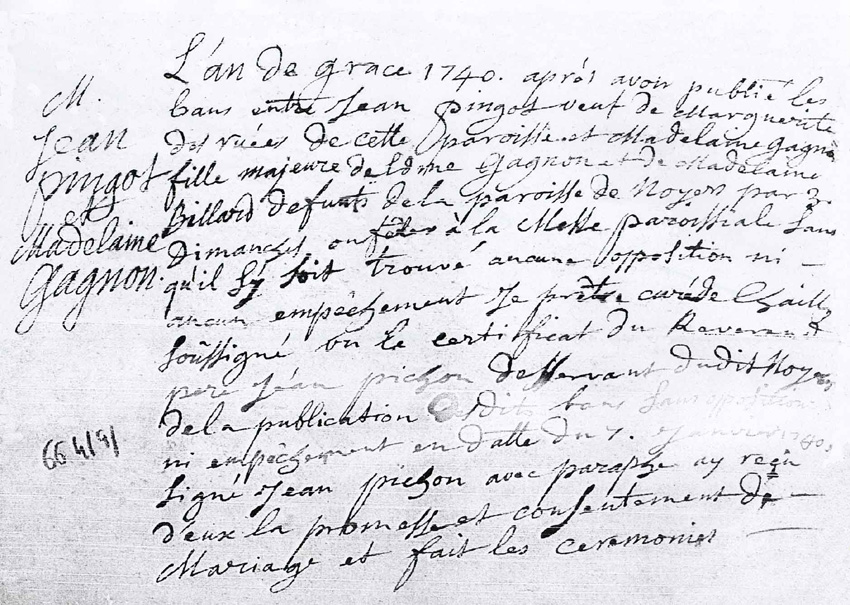 M.
Jean
pingot
et
Madelaine
Gagnon.
L'an de grace 1740. aprés avoir publié les
bans entre Jean pingot veuf de Marguerite
des ruées de cette paroisse et Madelaine gagnō
fille majeure de Edme Gagnon et de Madelaine
Billard defunts de la paroisse de Noyers par 3
Dimanches ou fêtes à la Messe paroissiale sans
qu'il s'y soit trouvé aucune opposition ni -
aucun empêchement Je prêtre curé de Chailly
soussigné vu le certificat du Reverend
pere Jean pichon desservant dudit Noyers
de la publication desdits bans sans opposition
ni empêchement en datte du 7. Janvier 1740.
signé Jean pichon avec paraphe ay reçu
d'eux la promesse et consentement de -
Mariage et fait les ceremonies
66 4/9/